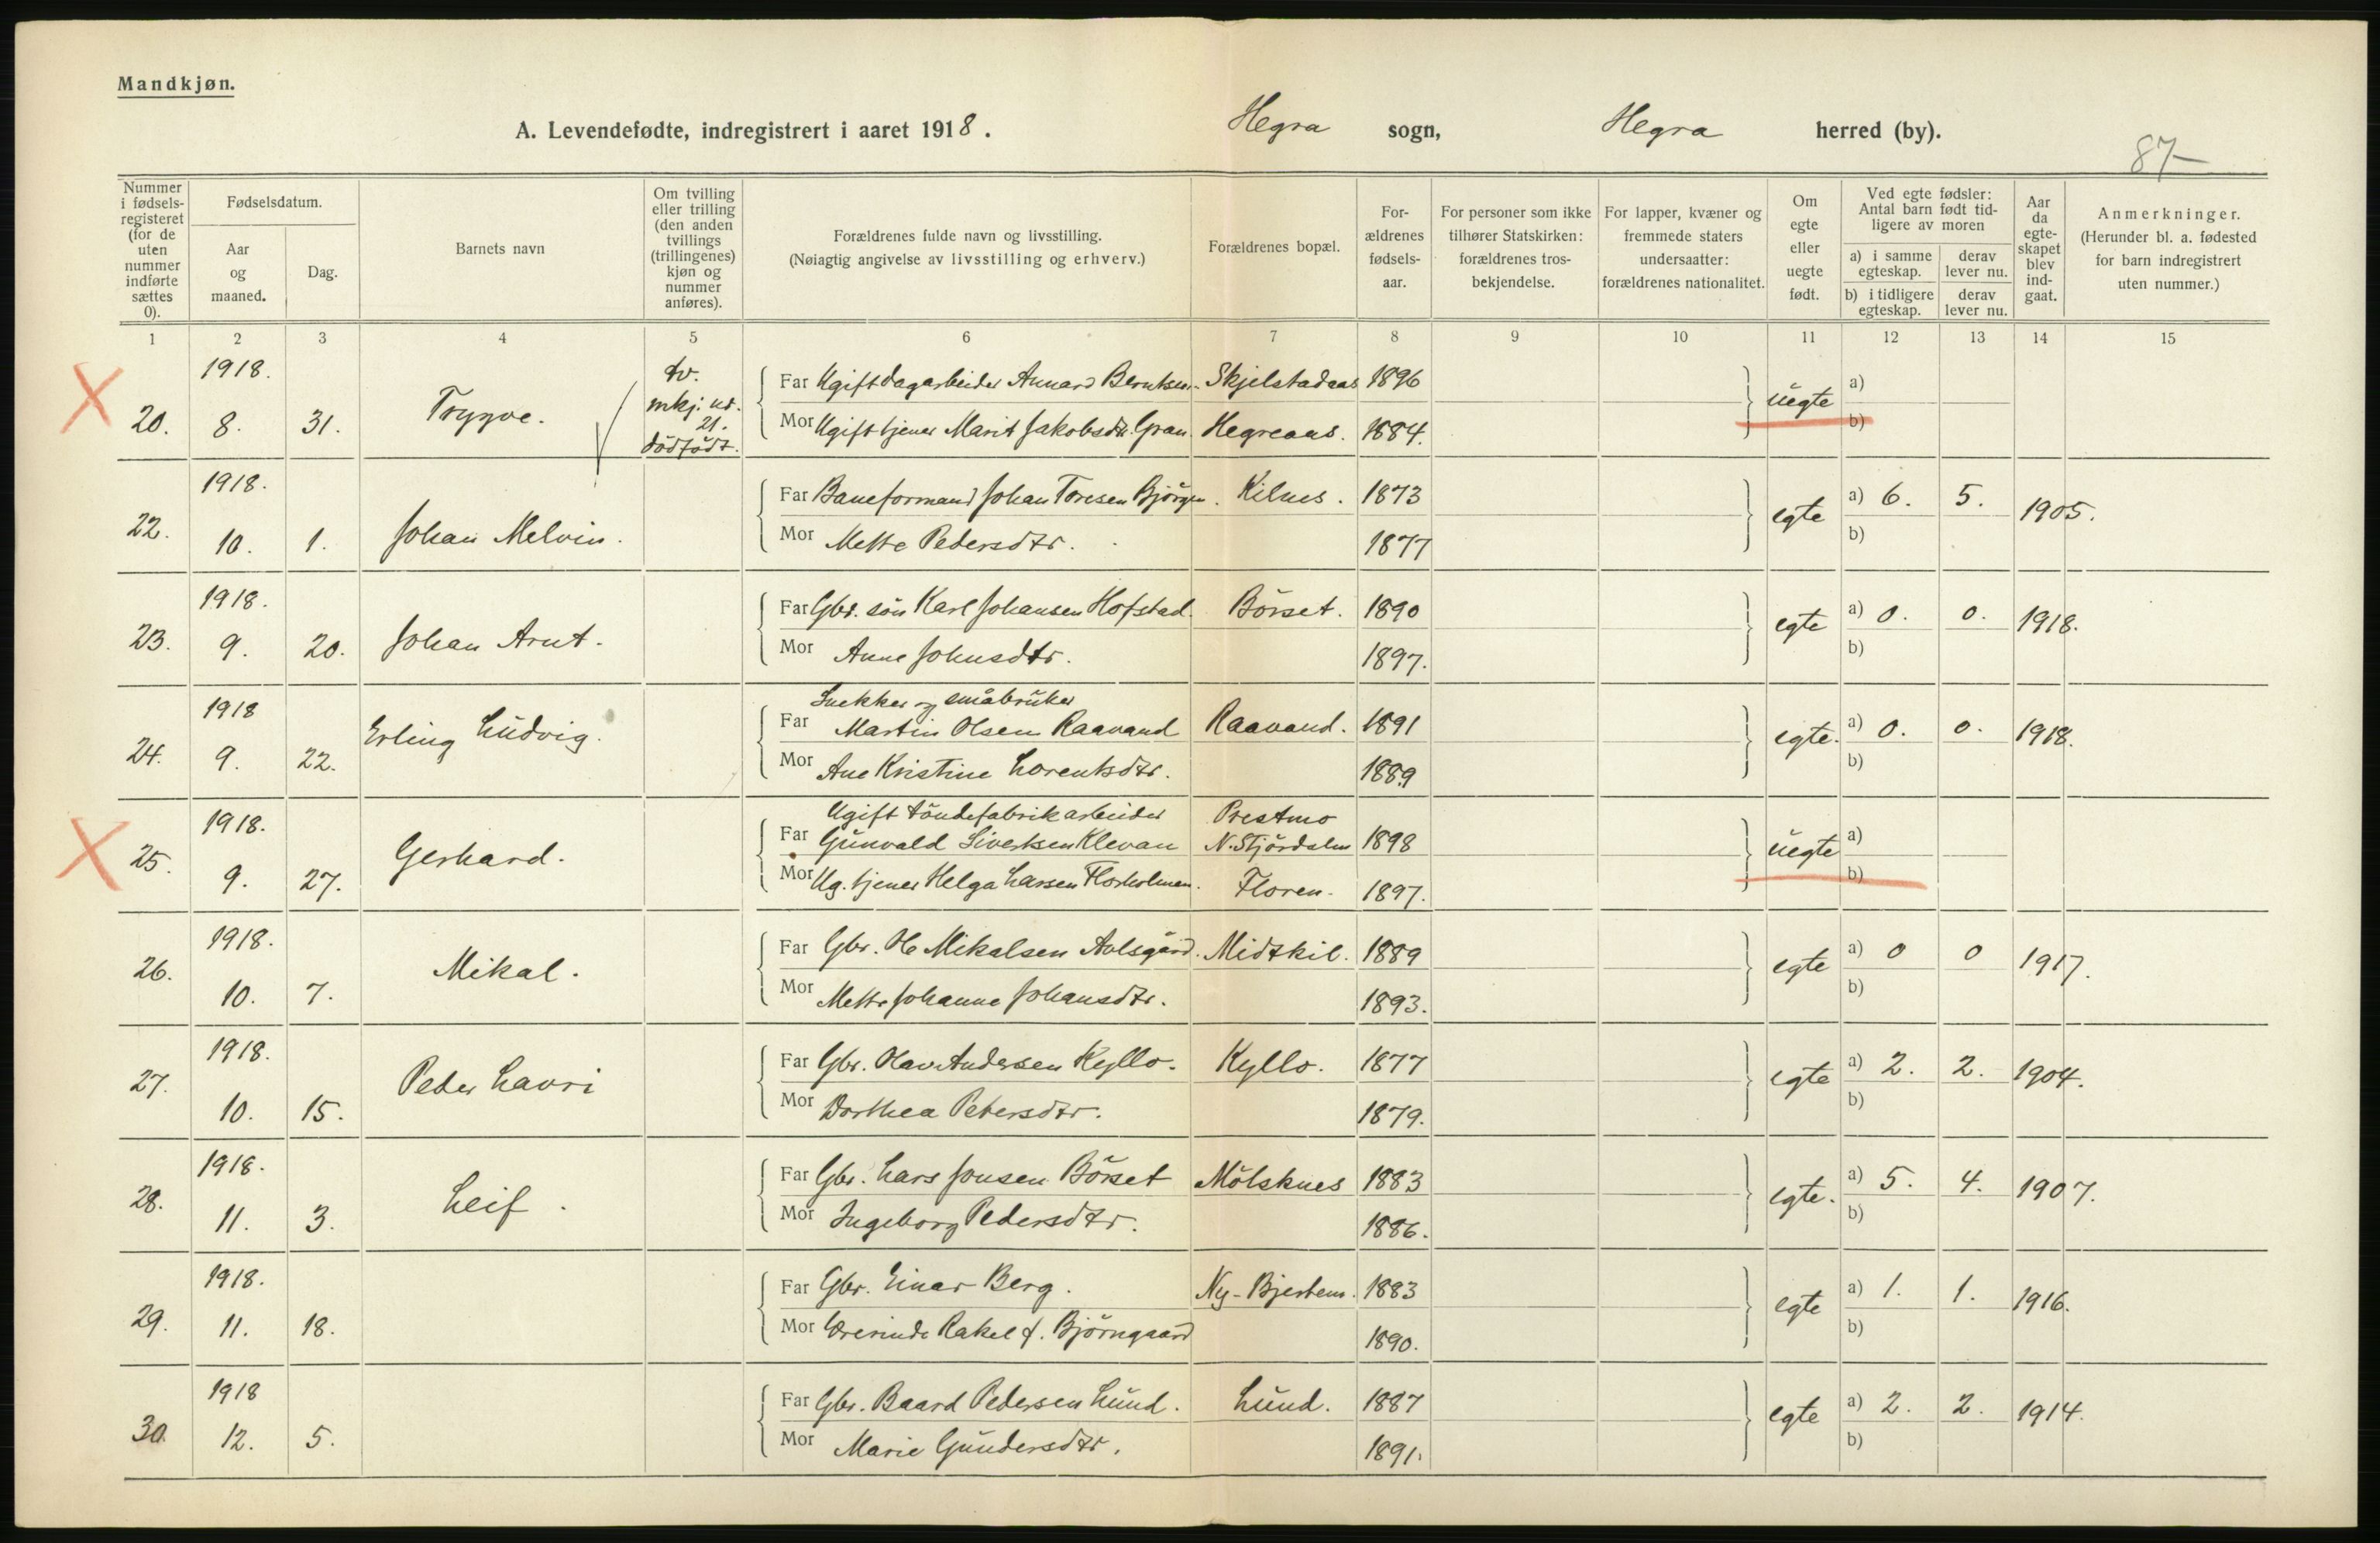 Mandkjøn.
A. Levendefødte, indregistrert i aaret 1918. Hegra sogn, Hegra herred (by).
87
Nummer i fødsels-registeret (for de uten nummer indførte sættes 0).
Fødselsdatum.
Aar og maaned.
Dag.
Barnets navn
Om tvilling eller trilling (den anden tvillings (trillingenes) kjøn og nummer anføres).
Forældrenes fulde navn og livsstilling.
(Nøiagtig angivelse av livsstilling og erhverv.)
Forældrenes bopæl.
For-ældrenes fødsels-aar.
For personer som ikke tilhører Statskirken: forældrenes tros-bekjendelse.
For lapper, kvæner og fremmede staters undersaatter: forældrenes nationalitet.
Om egte eller uegte født.
Ved egte fødsler: Antal barn født tid-ligere av moren
a) i samme egteskap.
derav lever nu.
b) i tidligere egteskap.
derav lever nu.
Aar da egte-skapet blev ind-gaat.
Anmerkninger.
(Herunder bl. a. fødested for barn indregistrert uten nummer.)
1 2 3 4 5 6 7 8 9 10 11 12 13 14 15
20. 1918. 8. 31. Trygve. tv. mkj. nr. 21. dödfödt.
Far Ugift dagarbeider Annard Berntsen Skjelstadaas 1896 uegte a)
Mor Ugift tjener Marit Jakobsdtr. Gran Hegreaas. 1884. b)
22. 1918. 10. 1. Johan Melvin.
Far Baneformand Johan Toresen Bjørgen. Kilnes. 1873 egte a) 6. 5. 1905.
Mor Mette Pedersdtr. 1877 b)
23. 1918. 9. 20. Johan Arnt.
Far Gbr. sön Karl Johansen Hofstad. Börset. 1890 egte a) 0. 0. 1918.
Mor Anne Johnsdtr. 1897. b)
24. 1918 9. 22. Erling Ludvig.
Snekker og småbruker
Far Martin Olsen Raavand Raavand. 1891 egte. a) 0. 0. 1918.
Mor Ane Kristine Lorentsdtr. 1889 b)
25. 1918. 9. 27. Gerhard.
Ugift töndefabrikarbeider Prestmo
Far Gunvald Sivertsen Klevan N. Stjördalen 1898 uegte a)
Mor Ug. tjener Helga Larsen Florholmen. Floren. 1897. b)
26. 1918. 10. 7. Mikal.
Far Gbr. Ole Mikalsen Avlsgård. Midtkil. 1889 egte a) 0 0 1917.
Mor Mette Johanne Johansdtr. 1893. b)
27. 1918. 10. 15. Peder Lavri
Far Gbr. Olav Andersen Kyllo. Kyllo. 1877 egte a) 2. 2. 1904.
Mor Dorthea Petersdtr. 1879. b)
28. 1918. 11. 3. Leif.
Far Gbr. Lars Jonsen Börset Mölsknes 1883 egte. a) 5. 4. 1907.
Mor Ingeborg Pedersdtr. 1886. b)
29. 1918. 11. 18.
Far Gbr. Einar Berg. Ny-Bjertem. 1883 egte a) 1. 1. 1916.
Mor Rakel f. Björngaard 1890. b)
30. 1918 12. 5.
Far Gbr. Baard Pedersen Lund. Lund. 1887 egte a) 2. 2. 1914.
Mor Marie Gundersdtr. 1891. b)